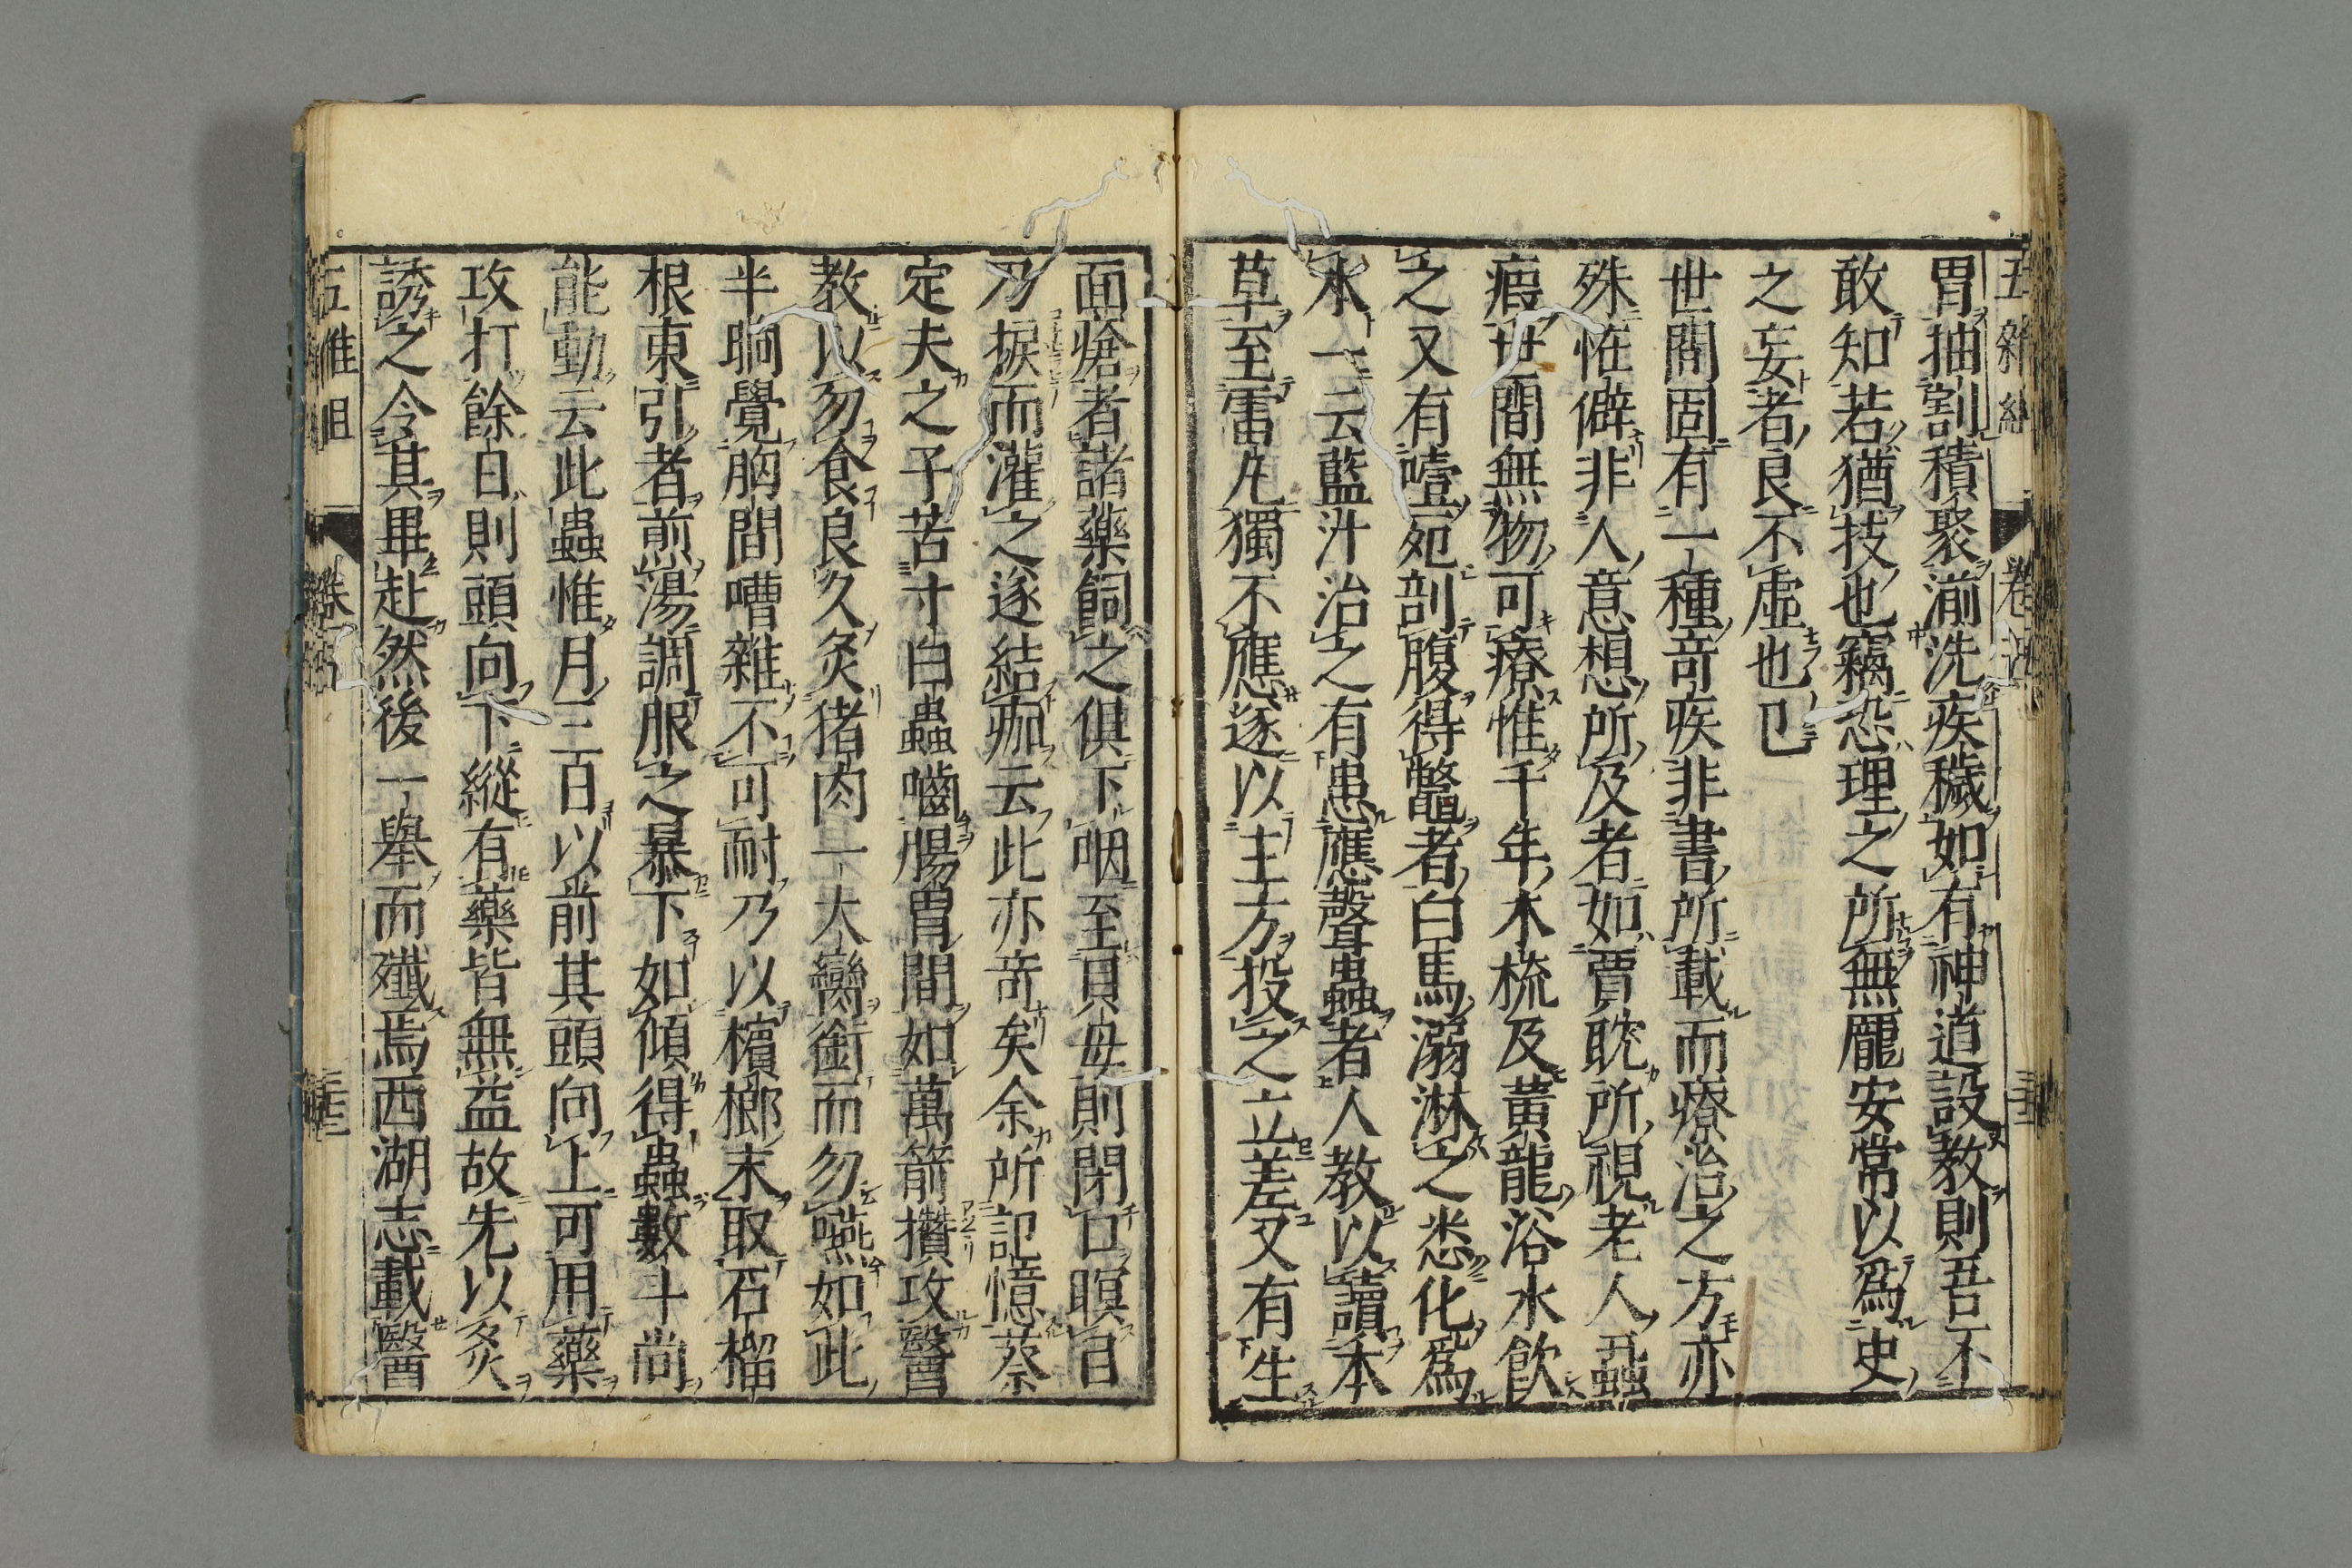 胃抽割積聚湔洗疾穢如有神道設教則吾不
敢知若猶技也竊恐理之所無龎安常以爲史
之妄者良不虛也已
世間固有一種奇疾非書所載而療治之方亦
殊恠僻非人意想所及者如賈耽所視老人蝨
瘕世間無物可療惟千年木梳及黃龍浴水飲
之又有噎死剖腹得鼈者白馬溺淋之悉化爲
水一云藍汁治之有患應聲蟲者人教以讀本
草至雷丸獨不應遂以主方投之立差又有生
面瘡者諸藥飼之俱下咽至貝母則閉口瞑目
乃捩而灌之遂結痂云此亦奇矣余所記憶蔡
定夫之子苦寸白蟲嚙腸胃間如萬箭攢攻醫
教以勿食良久炙猪肉一大臠銜而勿嚥如此
半晌覺胸間嘈雜不可耐乃以檳榔末取石榴
根東引者煎湯調服之暴下如傾得蟲數斗尚
能動云此蟲惟月三日以前其頭向上可用藥
攻打餘日則頭向下縱有藥皆無益故先以炙
誘之令其畢赴然後一舉而殲焉西湖志載醫